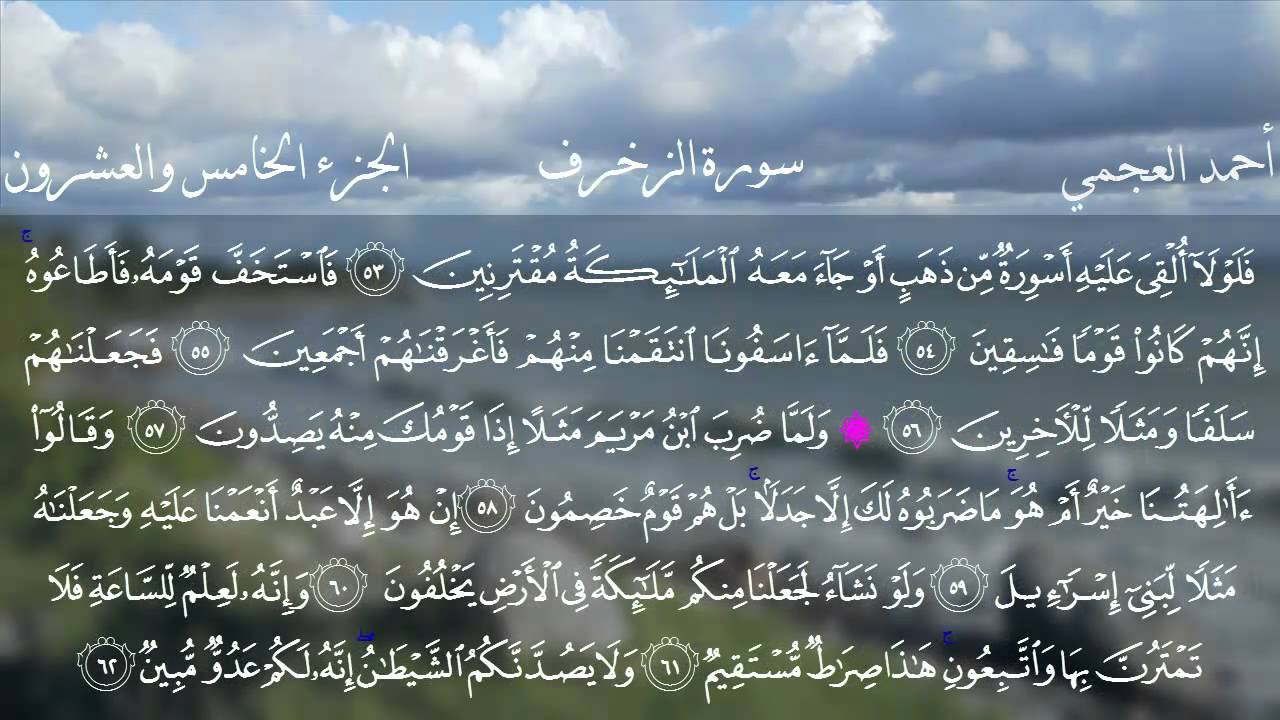 أحمد العجمي سورة الزخرف الجزء الخامس والعشرون
فَلَوْلَآ أُلْقِىَ عَلَيْهِ أَسْوِرَةٌ مِّن ذَهَبٍ أَوْ جَآءَ مَعَهُ ٱلْمَلَـٰٓئِكَةُ مُقْتَرِنِينَ ٥٣ فَٱسْتَخَفَّ قَوْمَهُۥ فَأَطَاعُوهُ ۚ
إِنَّهُمْ كَانُوا۟ قَوْمًا فَـٰسِقِينَ ٥٤ فَلَمَّآ ءَاسَفُونَا ٱنتَقَمْنَا مِنْهُمْ فَأَغْرَقْنَـٰهُمْ أَجْمَعِينَ ٥٥ فَجَعَلْنَـٰهُمْ
سَلَفًا وَمَثَلًا لِّلْـَٔاخِرِينَ ٥٦ ۞ وَلَمَّا ضُرِبَ ٱبْنُ مَرْيَمَ مَثَلًا إِذَا قَوْمُكَ مِنْهُ يَصِدُّونَ ٥٧ وَقَالُوٓا۟
ءَأَـٰلِهَتُنَا خَيْرٌ أَمْ هُوَ ۚ مَا ضَرَبُوهُ لَكَ إِلَّا جَدَلًۢا ۚ بَلْ هُمْ قَوْمٌ خَصِمُونَ ٥٨ إِنْ هُوَ إِلَّا عَبْدٌ أَنْعَمْنَا عَلَيْهِ وَجَعَلْنَـٰهُ
مَثَلًا لِّبَنِىٓ إِسْرَـٰٓءِيلَ ٥٩ وَلَوْ نَشَآءُ لَجَعَلْنَا مِنكُم مَّلَـٰٓئِكَةً فِى ٱلْأَرْضِ يَخْلُفُونَ ٦٠ وَإِنَّهُۥ لَعِلْمٌ لِّلسَّاعَةِ فَلَا
تَمْتَرُنَّ بِهَا وَٱتَّبِعُونِ ۚ هَـٰذَا صِرَٰطٌ مُّسْتَقِيمٌ ٦١ وَلَا يَصُدَّنَّكُمُ ٱلشَّيْطَـٰنُ ۖ إِنَّهُۥ لَكُمْ عَدُوٌّ مُّبِينٌ ٦٢